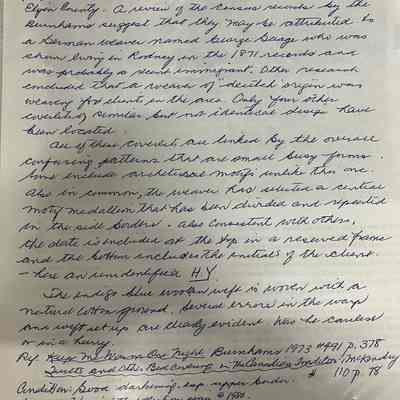 Elgin County. A review of the census records by the
Burnhams suggest that they may be attributed to
a German weaver named George Gage who was
shown living in Rodney in the 1871 records and
was probably a recent immigrant. Other research
concluded that a weaver of " origin was
weaving for clients in the area. Only four other
coverlets of similar but not identical design have
been located.
All of these coverlets are linked by the overall
confusing patterns that are small busy forms.
Some include architectural motifs unlike this one.
Also in common, the weaver has selected a central
motif medallion that has been divided and repeated
in the side borders. Also consistent with others,
the date is included at the top in a reserved frame
and the bottom includes the initials of the client
- here an unidentified H.Y.
The indigo blue woolen weft is woven with a
natural cotton ground. Several errors in the warp
and weft set up are clearly evident. Was he careless
or in a hurry.
Ref. Keep Me Warm One Night Burnhams 1973 #491 p. 378
and Other Bed Covering in the Canadian Tradition: McKendry
# 110 p. 78
Condition: Good darkening top upper border.